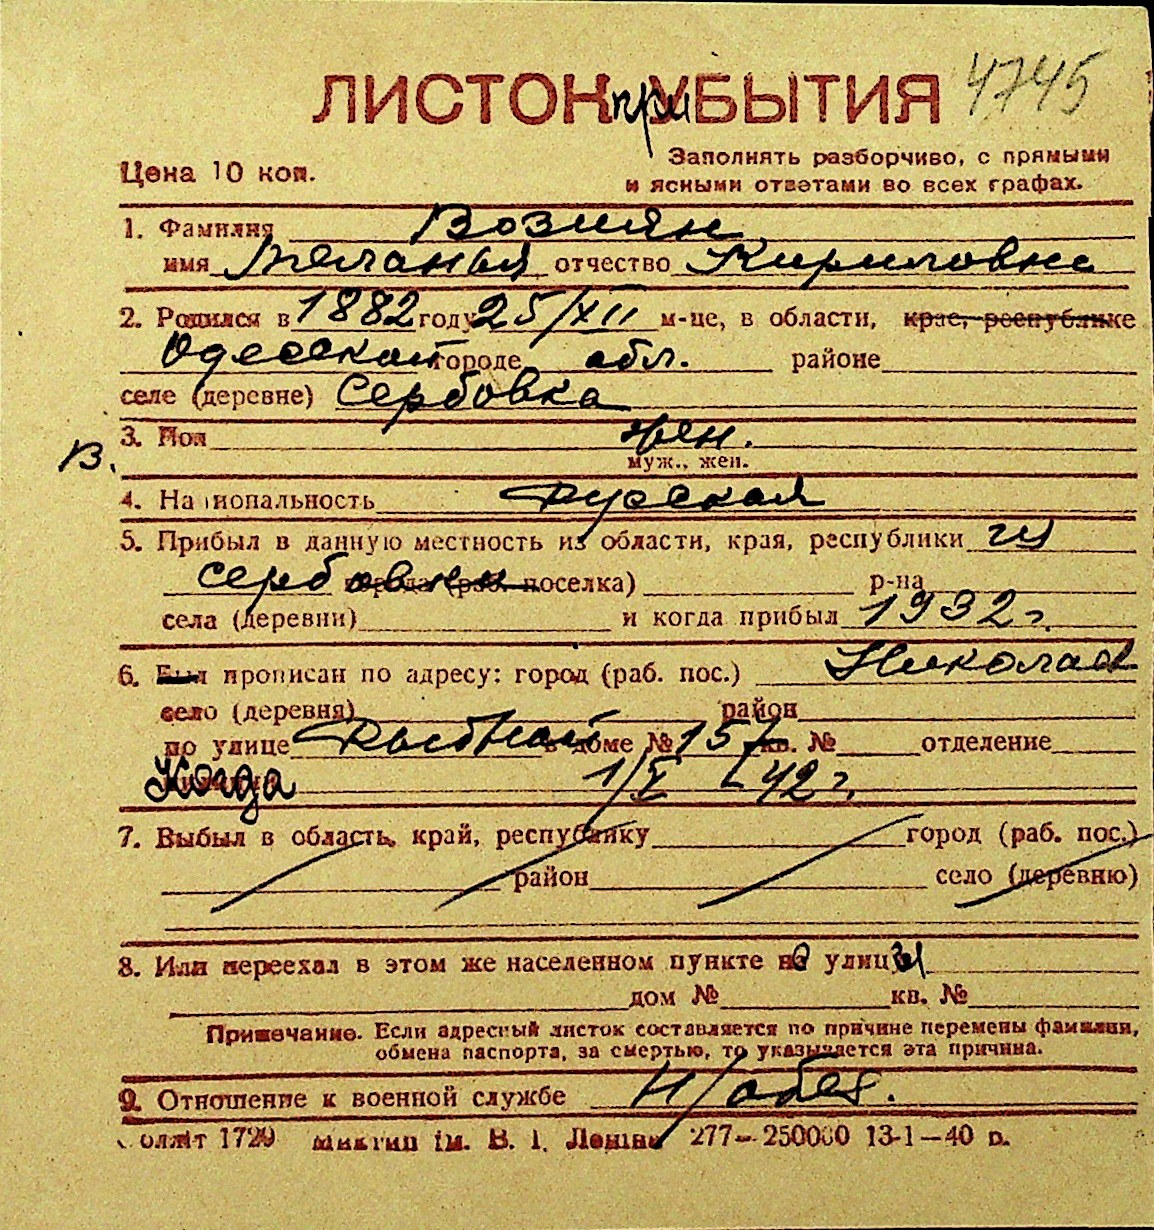 ЛИСТОК при УБЫТИЯ 4745
Цена 10 коп.
Заполнять разборчиво, с прямыми
и ясными ответами во всех графах.
1. Фамилия Возиян
имя Меланья отчество Кириловна
2. Родился в 1882 году 25/XII м-це, в области, крае, республике
Одесской городе обл. районе
селе (деревне) Сербовка
3. Пол жен.
В.
муж., жен.
4. Национальность русская
5. Прибыл в данную местность из области, края, республики из
Сербовки города (раб. поселка) р-на
села (деревни) и когда прибыл 1932 г.
6. Был прописан по адресу: город (раб. пос.) Николаев
село (деревня) район
по улице Рыбной в доме № 157 кв. № отделение
Когда 1/V - 42 г.
7. Выбыл в область, край, республику город (раб. пос.)
район село (деревню)
8. Или переехал в этом же населенном пункте на улицу
дом № кв. №
Примечание. Если адресный листок составляется по причине перемены фамилии,
обмена паспорта, за смертью, то указывается эта причина.
9. Отношение к военной службе н/обяз.
1720 ім. В. І. Леніна 277—250000 13-1—40 р.